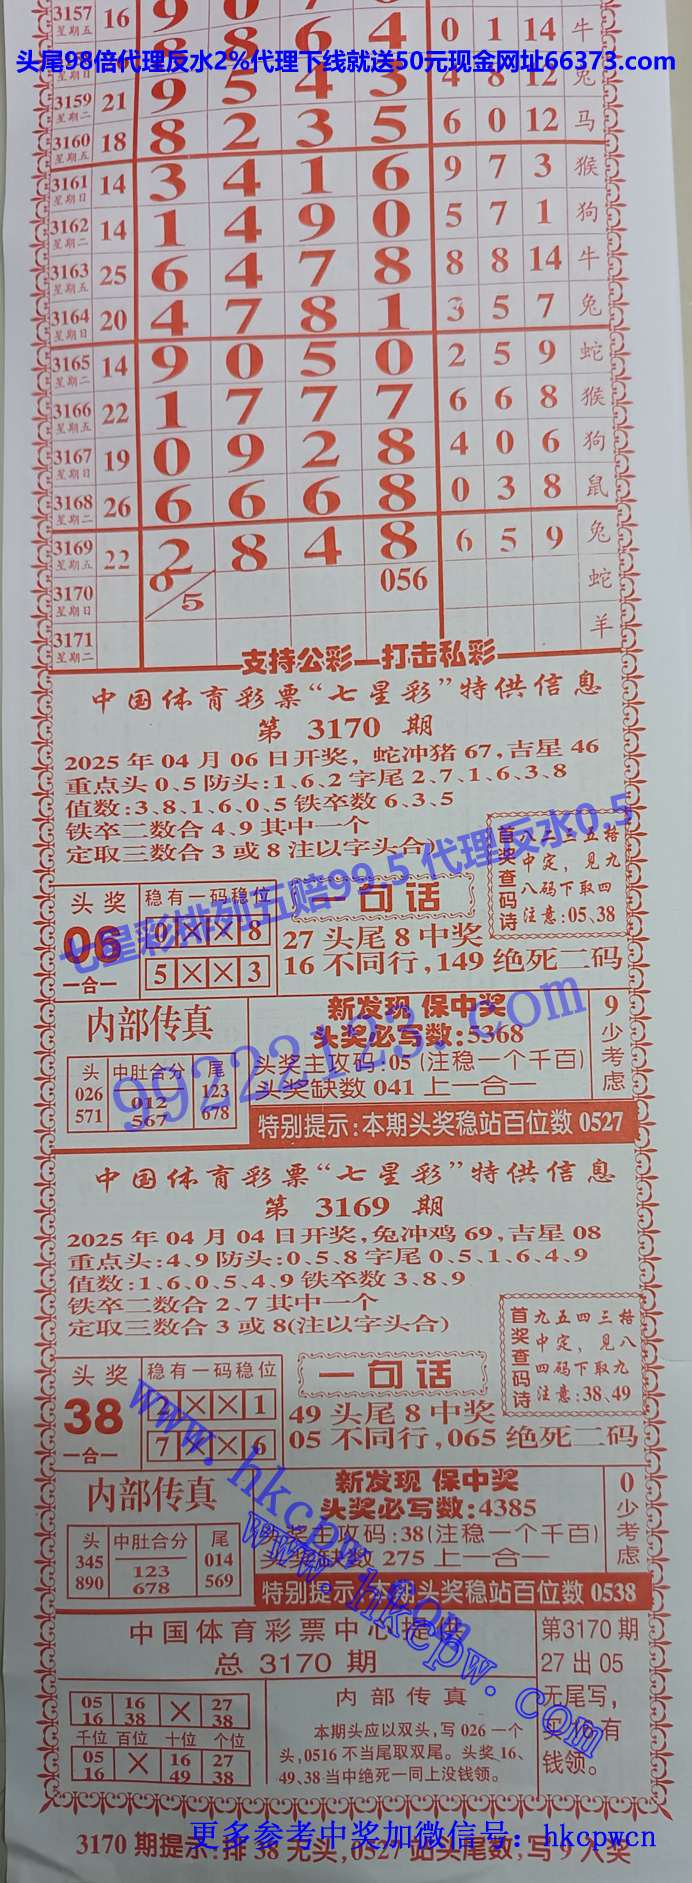 3157 星期五 16 9 0 7 6 0 1 14 牛
头尾98倍代理反水2%代理下线就送50元现金网址66373.com
8 8 6 4
3159 星期二 21 9 5 4 3 4 8 12 兔
3160 星期五 18 8 2 3 5 6 0 12 马
3161 星期日 14 3 4 1 6 9 7 3 猴
3162 星期二 14 1 4 9 0 5 7 1 狗
3163 星期五 25 6 4 7 8 8 8 14 牛
3164 星期日 20 4 7 8 1 3 5 7 兔
3165 星期二 14 9 0 5 0 2 5 9 蛇
3166 星期五 22 1 7 7 7 6 6 8 猴
3167 星期日 19 0 9 2 8 4 0 6 狗
3168 星期二 26 6 6 6 8 0 3 8 鼠
3169 星期五 22 2 8 4 8 6 5 9 兔
3170 星期日 0/5 056 蛇
3171 星期二 羊
支持公彩—打击私彩
中国体育彩票“七星彩”特供信息
第 3170 期
2025 年 04 月 06 日开奖，蛇冲猪 67,吉星 46
重点头 0、5 防头:1、6、2 字尾 2、7、1、6、3、8
值数:3、8、1、6、0、5 铁卒数 6、3、5
铁卒二数合 4、9 其中一个
定取三数合 3 或 8 注以字头合)
首奖查码诗
八二三五搭
中定，见九
八码下取四
注意:05、38
七星彩排列五赔99.5 代理反水0.5
头奖
06
一合一
稳有一码稳位
0 × × 8
5 × × 3
一句话
27 头尾 8 中奖
16 不同行,149 绝死二码
内部传真
头 中肚合分 尾
026 012 123
571 567 678
新发现 保中奖
头奖必写数:5368
头奖主攻码:05 (注稳一个千百)
头奖缺数 041 上一合一
9少考虑
99222123.com
特别提示:本期头奖稳站百位数 0527
中国体育彩票“七星彩”特供信息
第 3169 期
2025 年 04 月 04 日开奖,兔冲鸡 69,吉星 08
重点头:4、9 防头:0、5、8 字尾 0、5、1、6、4、9
值数:1、6、0、5、4、9 铁卒数 3、8、9
铁卒二数合 2、7 其中一个
定取三数合 3 或 8(注以字头合)
首奖查码诗
九五四三搭
中定，见八
四码下取九
注意:38、49
头奖
38
一合一
稳有一码稳位
× × 1
7 × 6
一句话
49 头尾 8 中奖
05 不同行,065 绝死二码
www.hkcpw.com
内部传真
头 中肚合分 尾
345 123 014
890 678 569
新发现 保中奖
头奖必写数:4385
头奖主攻码:38(注稳一个千百)
头奖缺数 275 上一合一
0少考虑
www.hkcpw.com
特别提示:本期头奖稳站百位数 0538
中国体育彩票中心提供
总 3170 期
05 16 × 27
16 38 38
千位 百位 十位 个位
05 × 16 27
16 49 38
内部传真
本期头应以双头,写 026 一个
头,0516 不当尾取双尾。头奖 16、
49、38 当中绝死一同上没钱领。
第3170 期
27 出 05
无尾写,
买 16 有
钱领。
3170 期提示:排 38 无头,0527 站头尾数,写 9 入奖
更多参考中奖加微信号：hkcpwcn